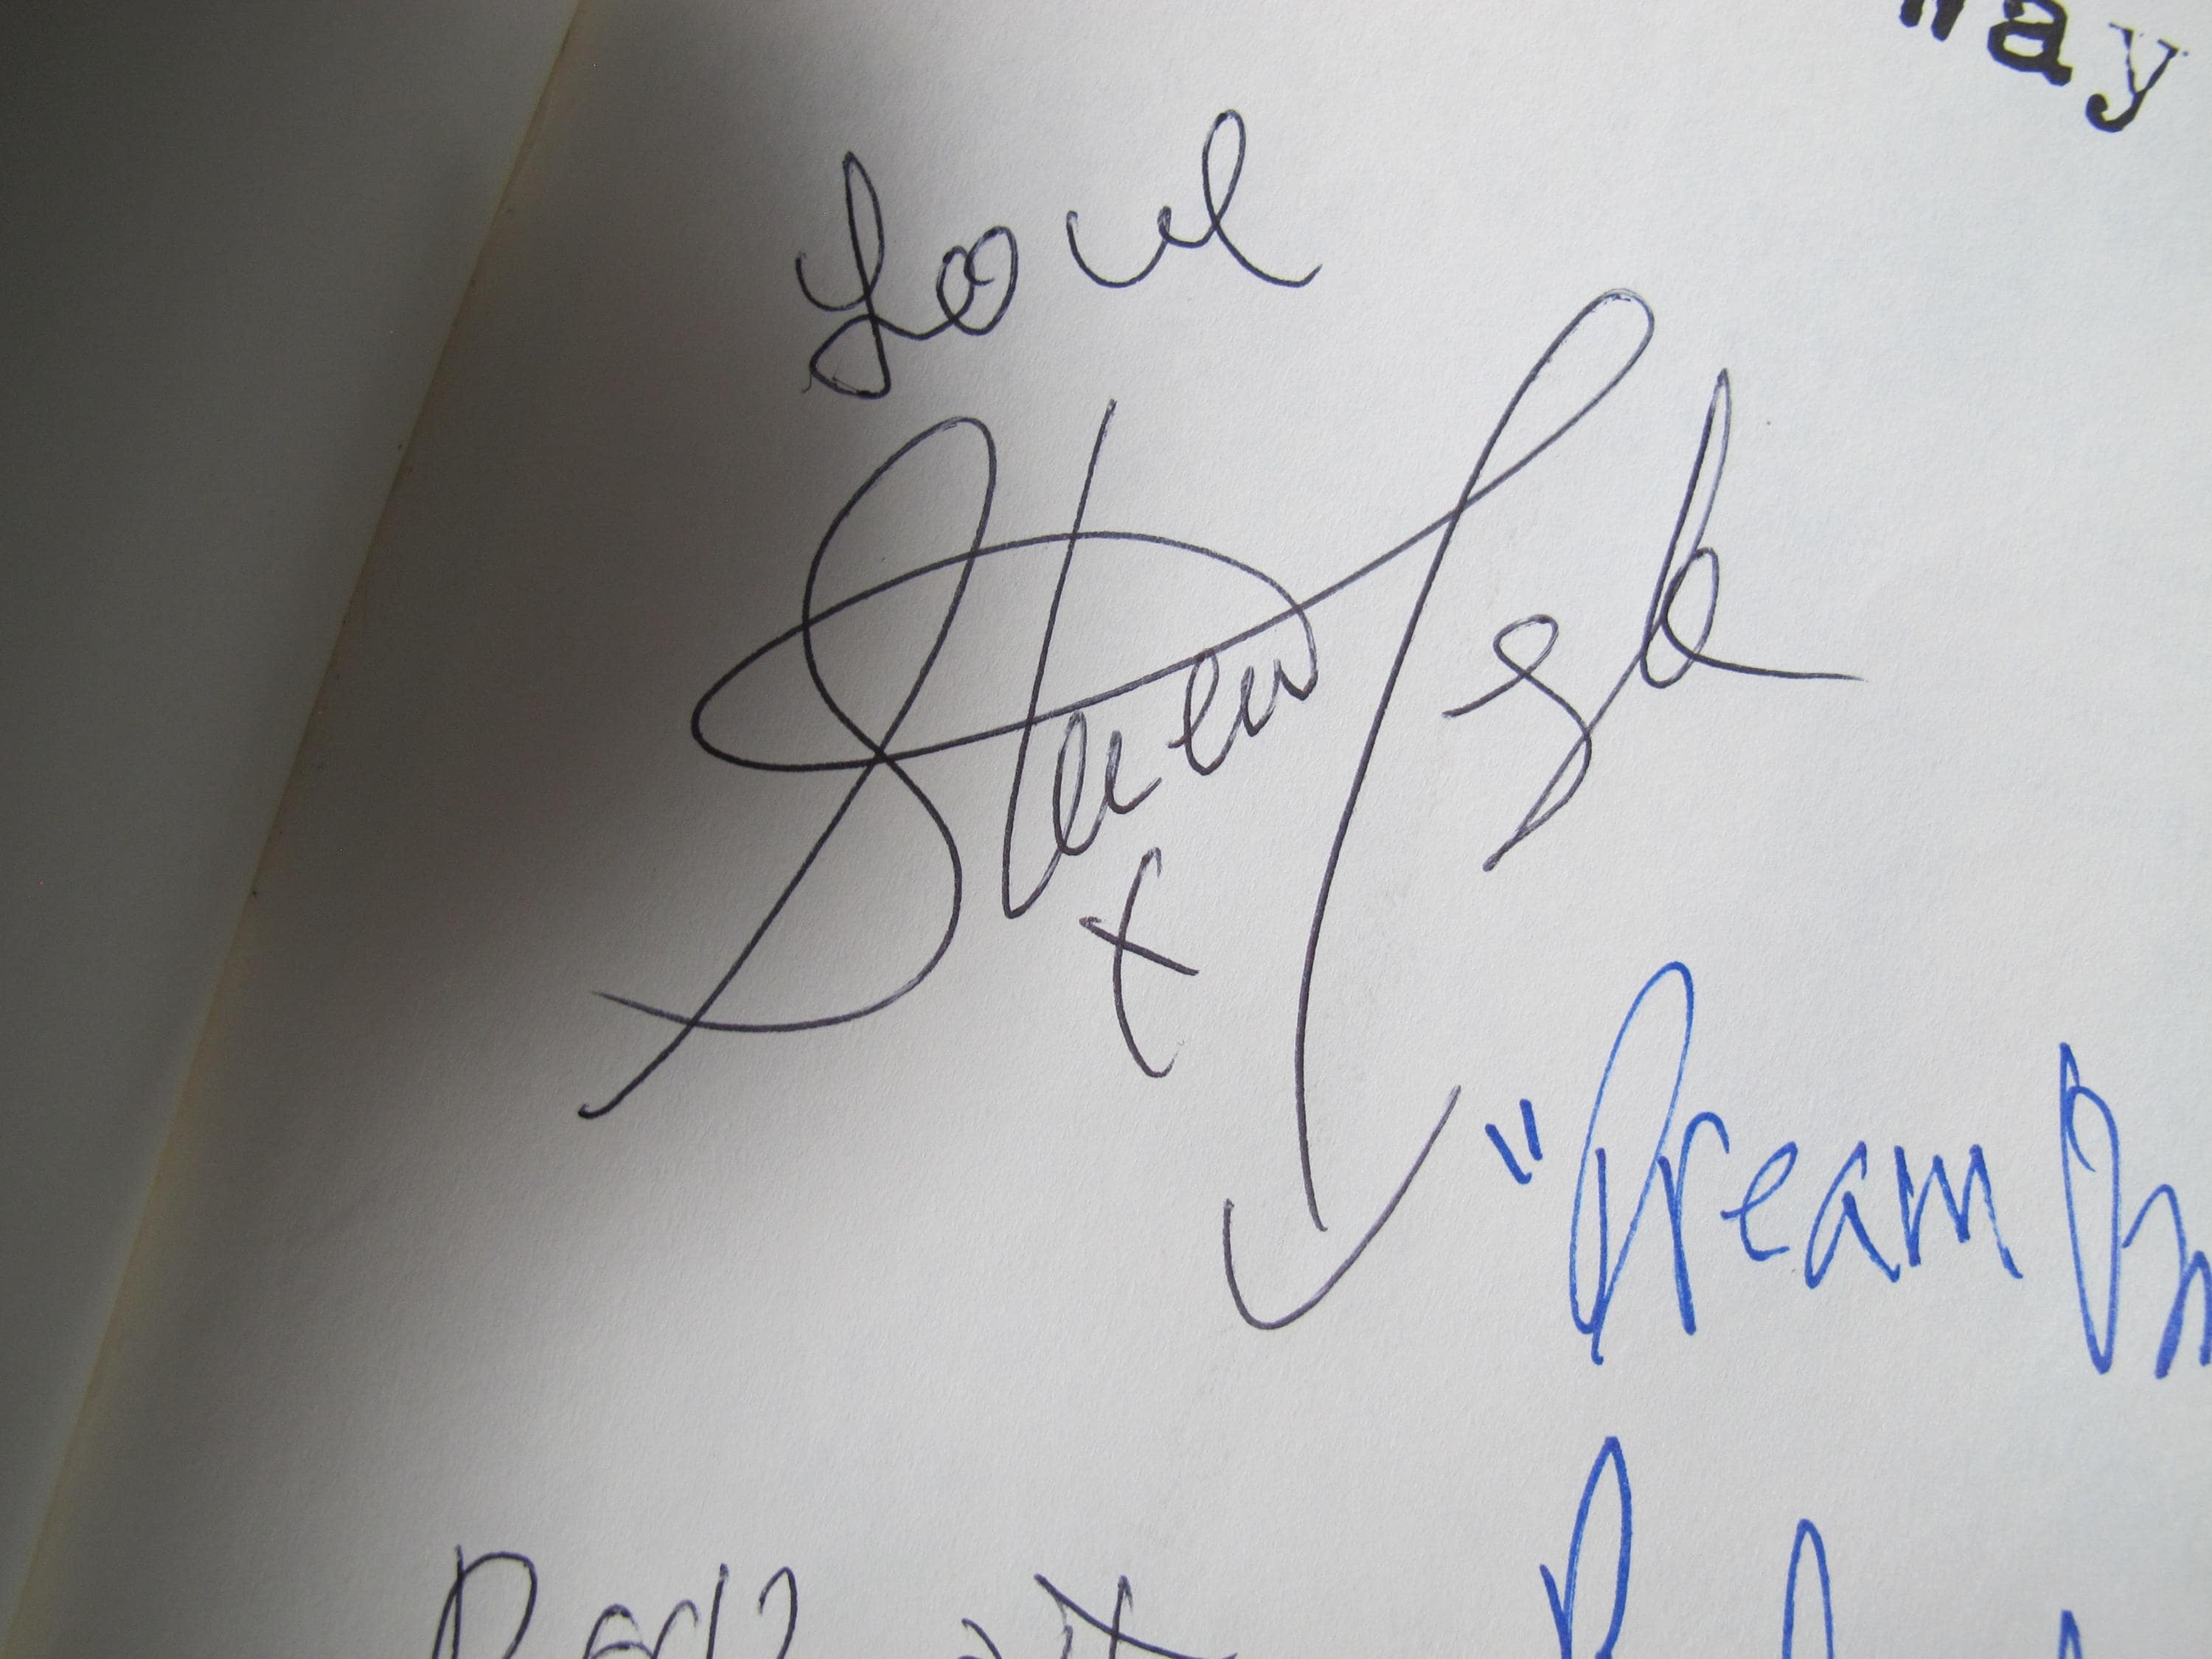 Way
Love
Steven Tyler
x
"Dream On
Rock it